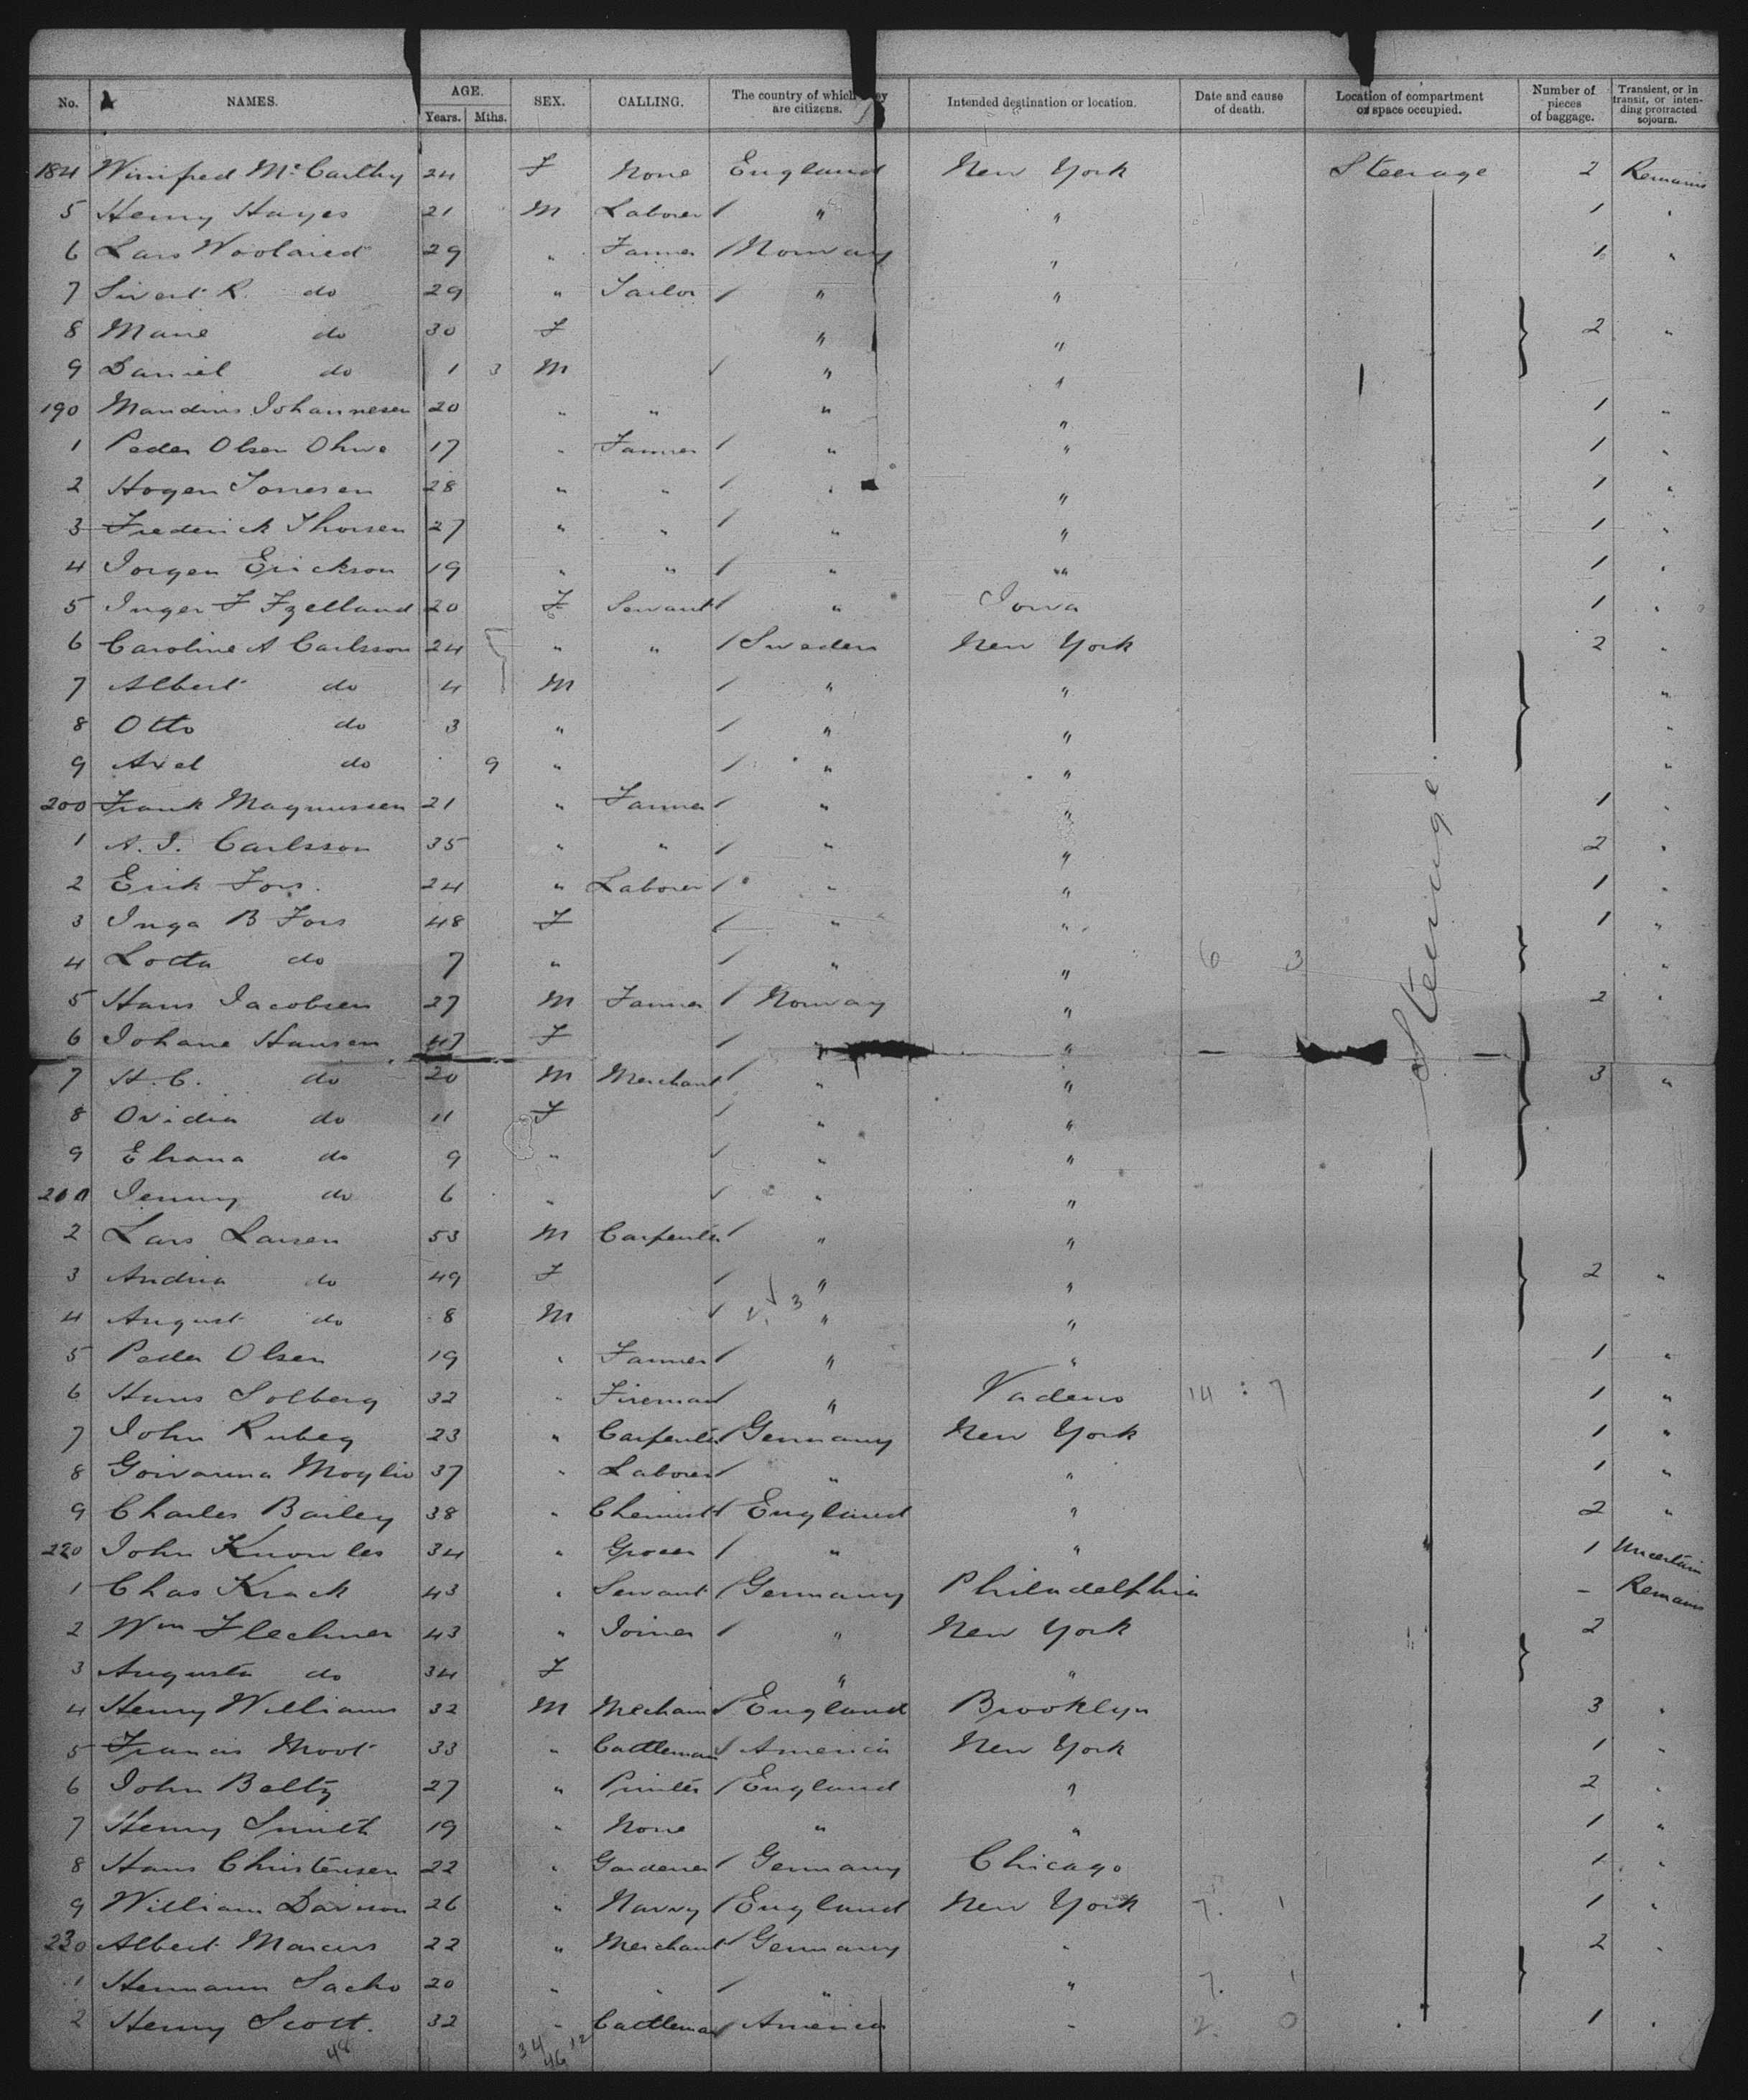 No. NAMES. AGE. Years. Mths. SEX. CALLING. The country of which they are citizens. Intended destination or location. Date and cause of death. Location of compartment or space occupied. Number of pieces of baggage. Transient, or in transit, or intending protracted sojourn.
184 Winifred McCarthy 24 F None England New York Steerage 2 Remains
5 Henry Hayes 21 M Laborer / " " 1 "
6 Lars 29 " Farmer / Norway " 1 "
7 Sivert R. do 29 " Tailor / " "
8 Marie do 30 F " " 2 "
9 Daniel do 1 3 M / " "
190 Johannesen 20 " " " " 1 "
1 Peder Olsen 17 " Farmer / " " 1 "
2 Hogen 28 " " / " " 1 "
3 Frederick Thorsen 27 " " / " " 1 "
4 Jorgen Erickson 19 " " / " " 1 "
5 Inger F 20 F Servant / " Iowa 1 "
6 Caroline A Carlsson 24 " " / Sweden New York 2 "
7 Albert do 4 M / " " "
8 Otto do 3 " / " " "
9 Axel do 9 " / " " "
200 Frank Magnussen 21 " Farmer / " " 1 "
1 A. J. Carlsson 35 " " / " " 2 "
2 Erik Fors. 24 " Laborer / " " 1 "
3 Inga B Fors 48 F / " " 1 "
4 Lotta do 7 " / " " 6 3 "
5 Hans Jacobsen 27 M Farmer / Norway " 2 "
6 Johane Hansen 47 F / " "
7 H. C. do 20 M Merchant / " " 3 "
8 Ovidia do 11 F / " "
9 do 9 " / " "
Jenny do 6 " / " "
2 Lars Larsen 53 M Carpenter / " "
3 Andrea do 49 F / " " 2 "
4 August do 8 M / " "
5 Peder Olsen 19 " Farmer / " " 1 "
6 Hans Solberg 32 " Fireman / " 14 : 7 1 "
7 John 23 " Carpenter / Germany New York 1 "
8 37 " Laborer / " " 1 "
9 Charles Bailey 38 " Chemist / England " 2 "
220 John Knowles 34 " Grocer / " " 1 Uncertain
1 Chas Krack 43 " Servant / Germany Philadelphia - Remains
2 Wm Flechner 43 " Joiner / " New York 2
3 Augusta do 34 F " "
4 Henry Williams 32 M Mechanic / England Brooklyn 3 "
5 Francis 33 " Cattleman / America New York 1 "
6 John 27 " Printer / England " 2 "
7 Henry Smith 19 " None " " 1 "
8 Hans Christensen 22 " Gardener / Germany Chicago 1 "
9 William Davison 26 " Navvy / England New York 7. 1 1 "
230 Albert Marcus 22 " Merchant / Germany " 2 "
1 Hermann Sachs 20 " " / " " 7. 1
2 Henry Scott. 32 " Cattleman / America " 2. 0 1 "
Steerage.
48 34 46 12